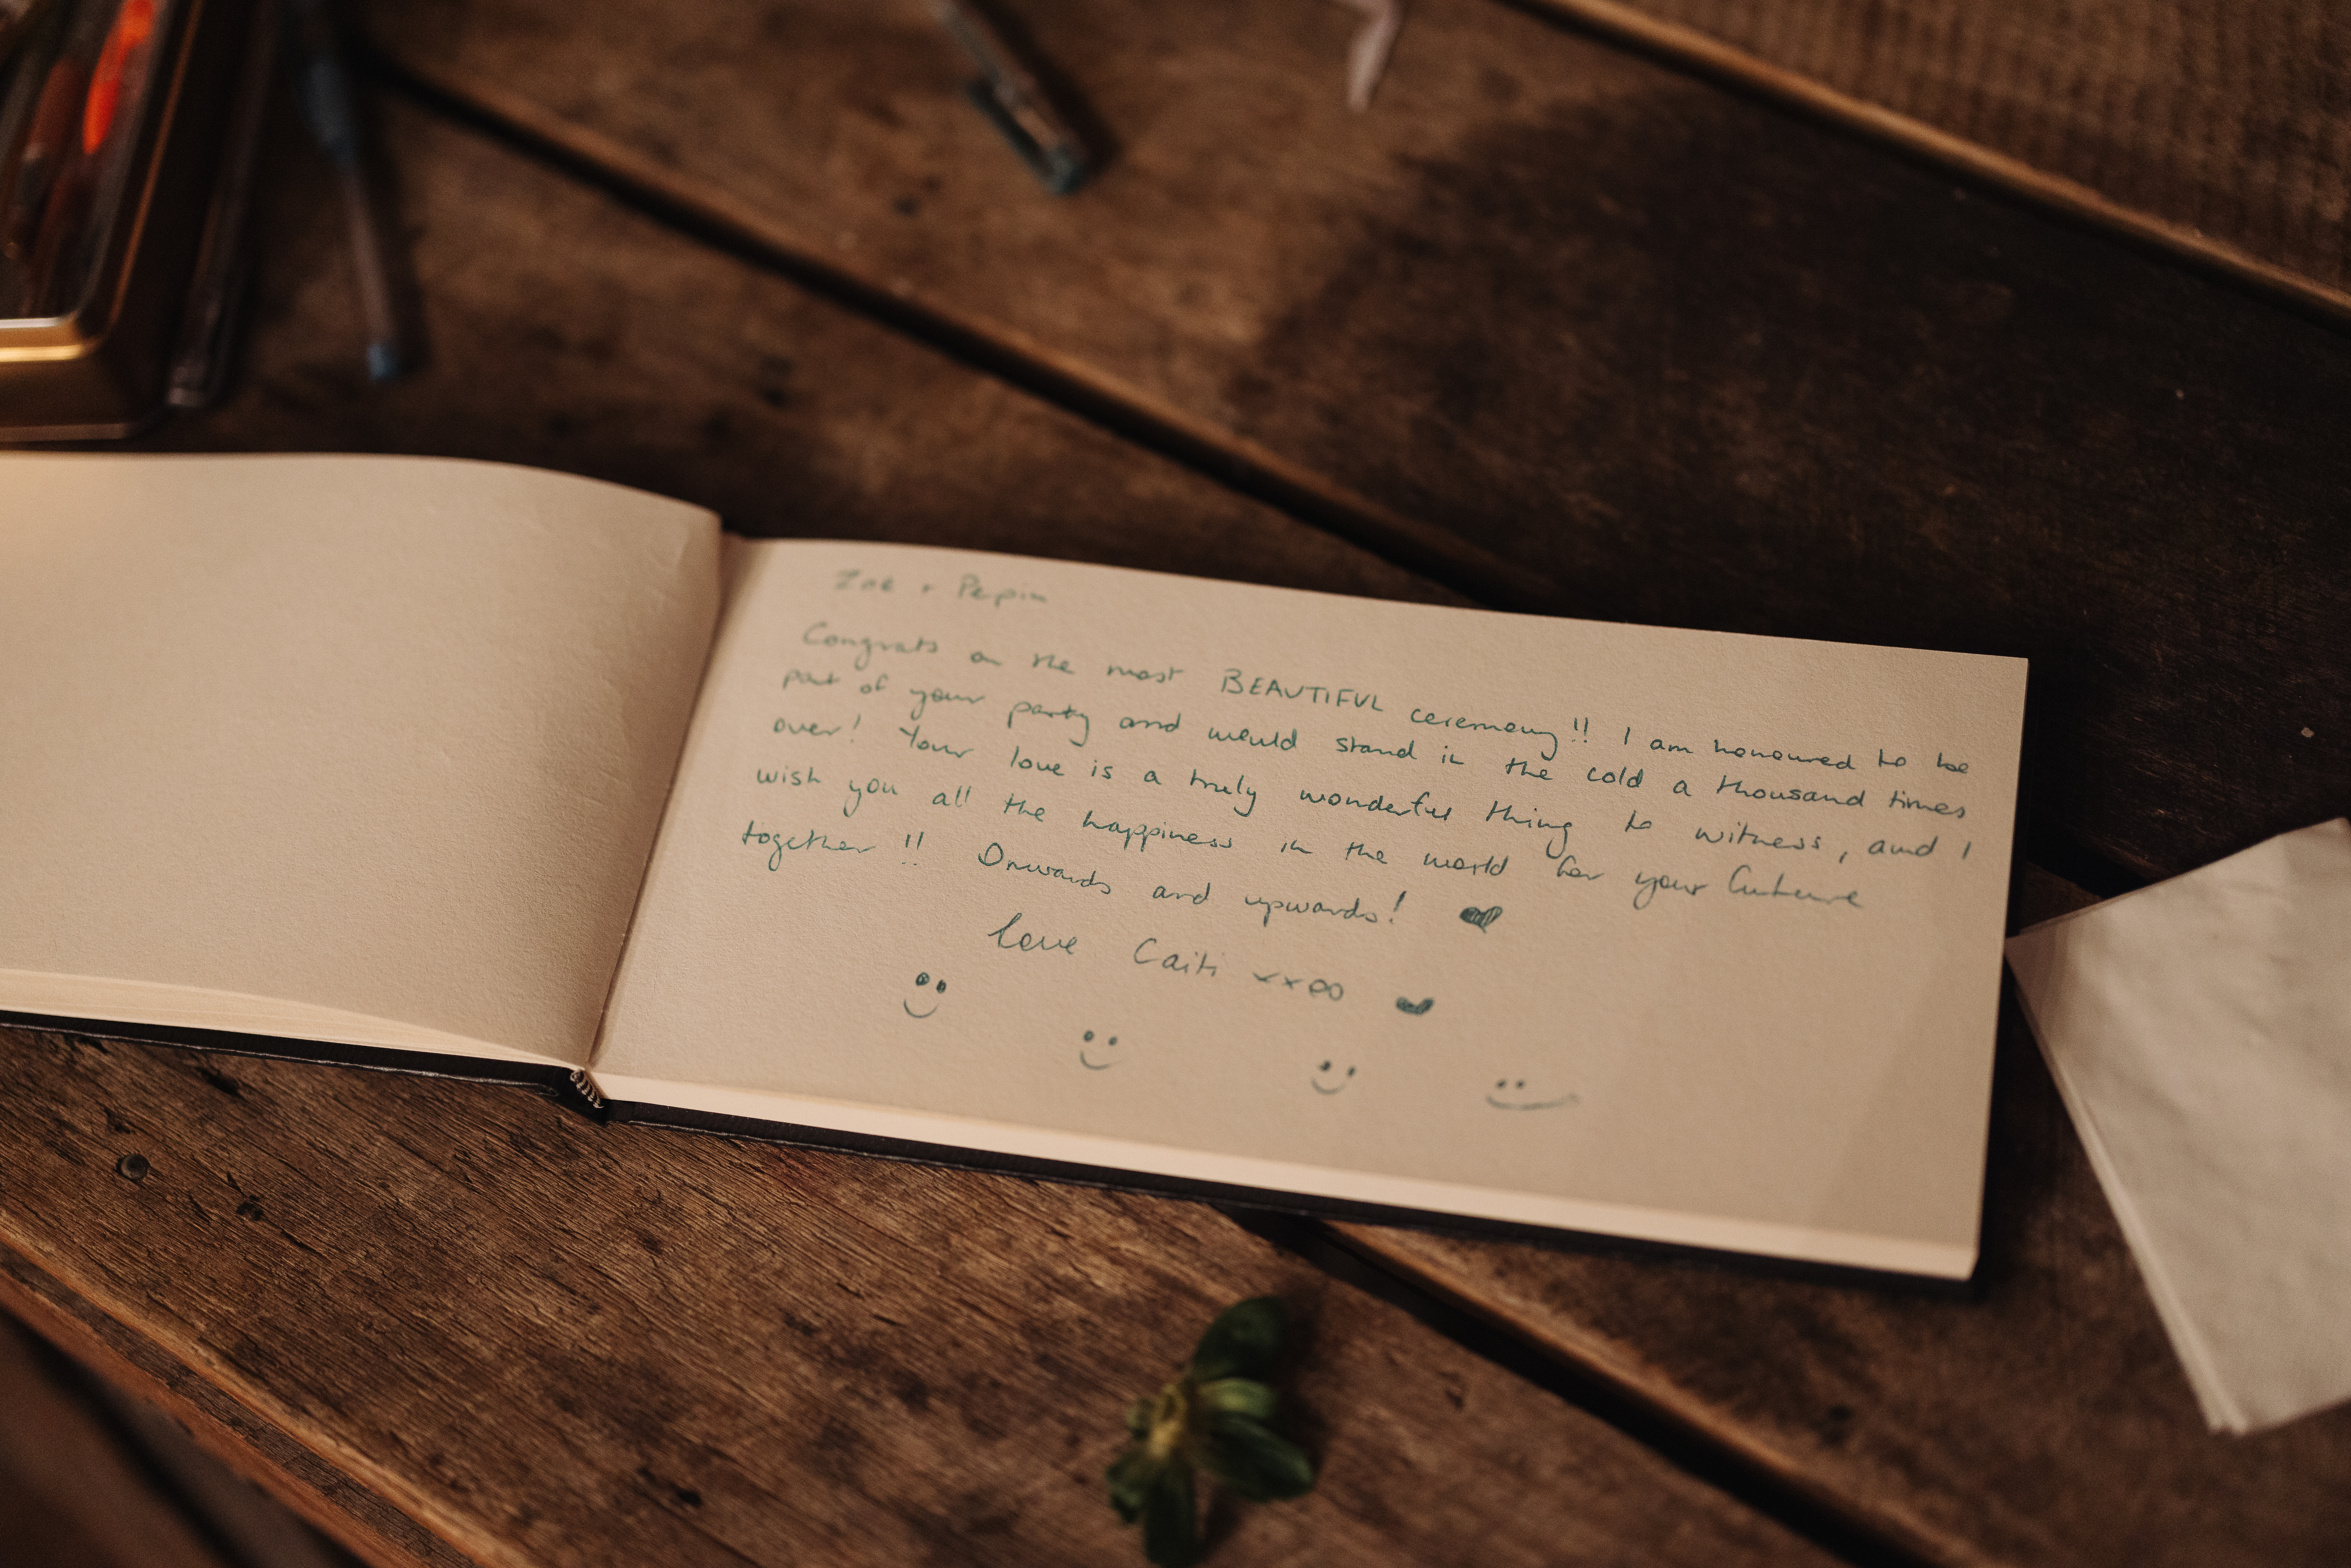 Zoe + Pepin
Congrats on the most BEAUTIFUL ceremony!! I am honoured to be
part of your party and would stand in the cold a thousand times
over! Your love is a truly wonderful thing to witness, and I
wish you all the happiness in the world for your future
together!! Onwards and upwards! ♥
love Caiti xxoo ♥